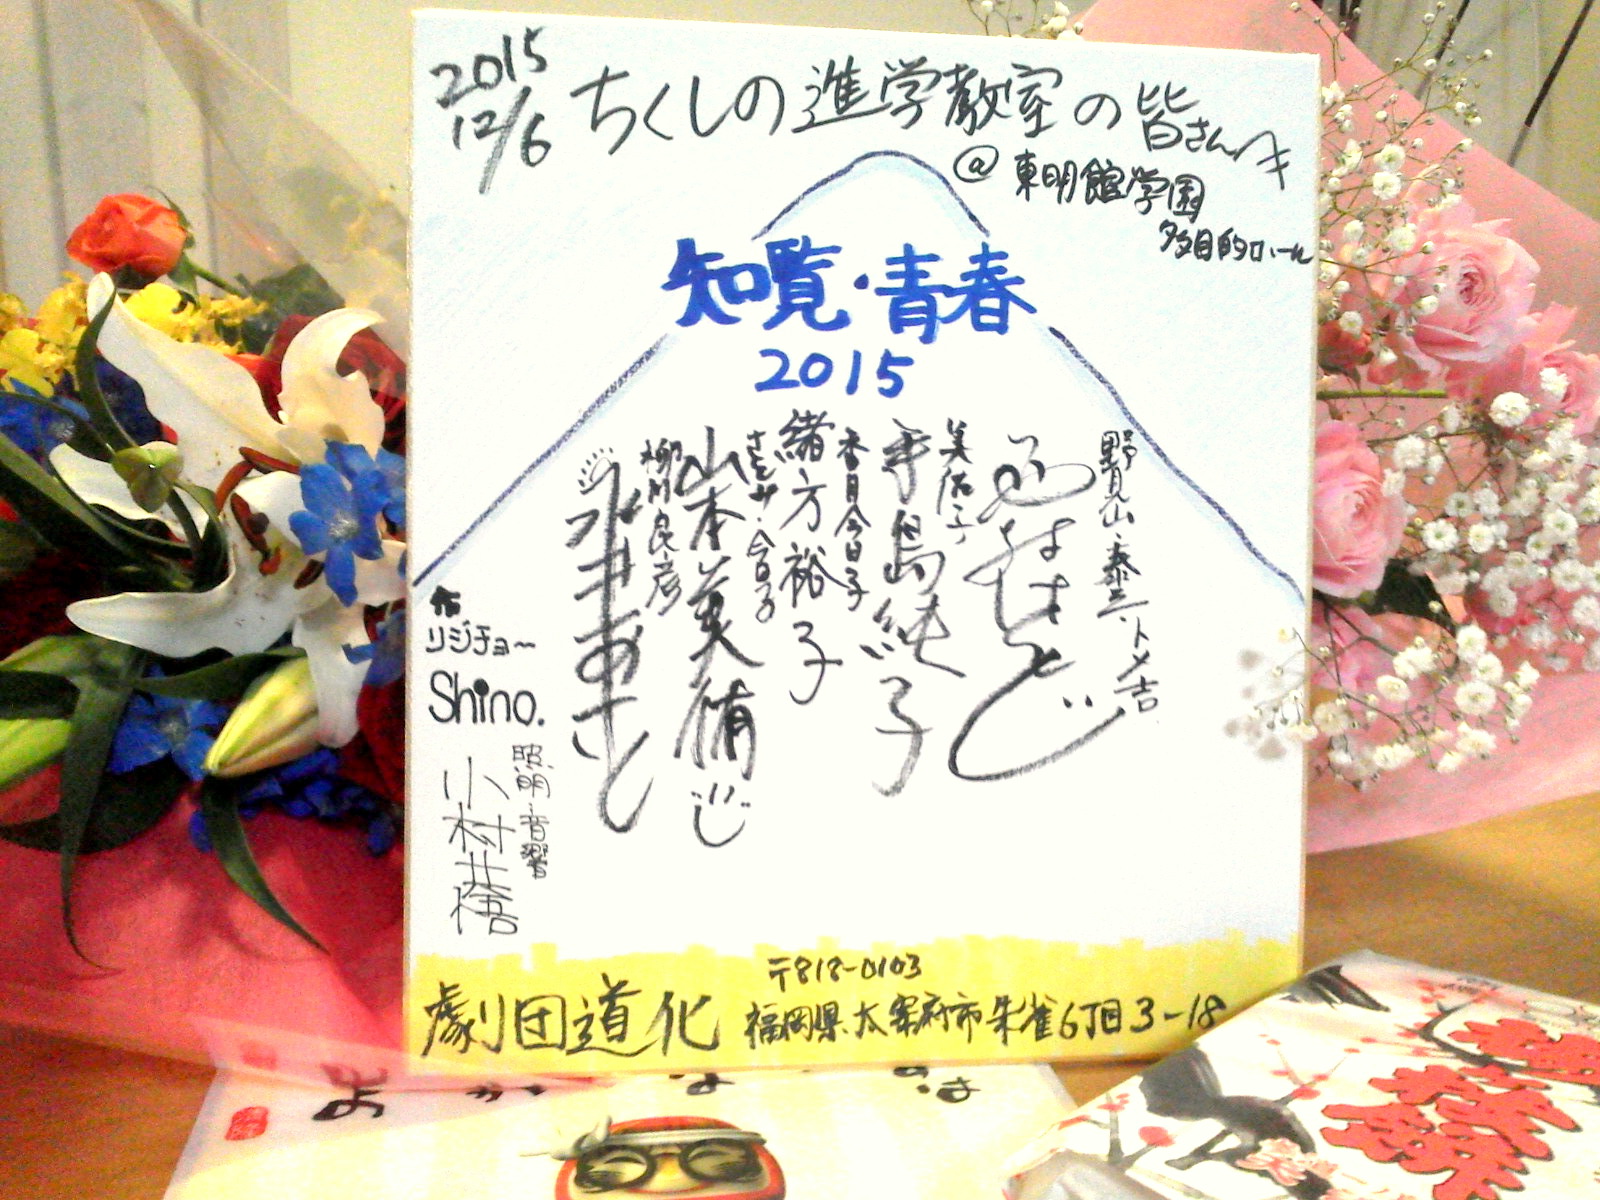 2015
12/6
ちくしの進学教室の皆さんへ
@東明館学園
多目的ホール
知覧・青春
2015
野見山・泰三・トメ吉
美佐子
手島純子
香月今日子
緒方裕子
さとみ・今日子
山本美侑
柳川良彦
作
リジチョー
Shino.
照明・音響
小村井悟
劇団道化
〒818-0103
福岡県太宰府市朱雀6丁目3-18